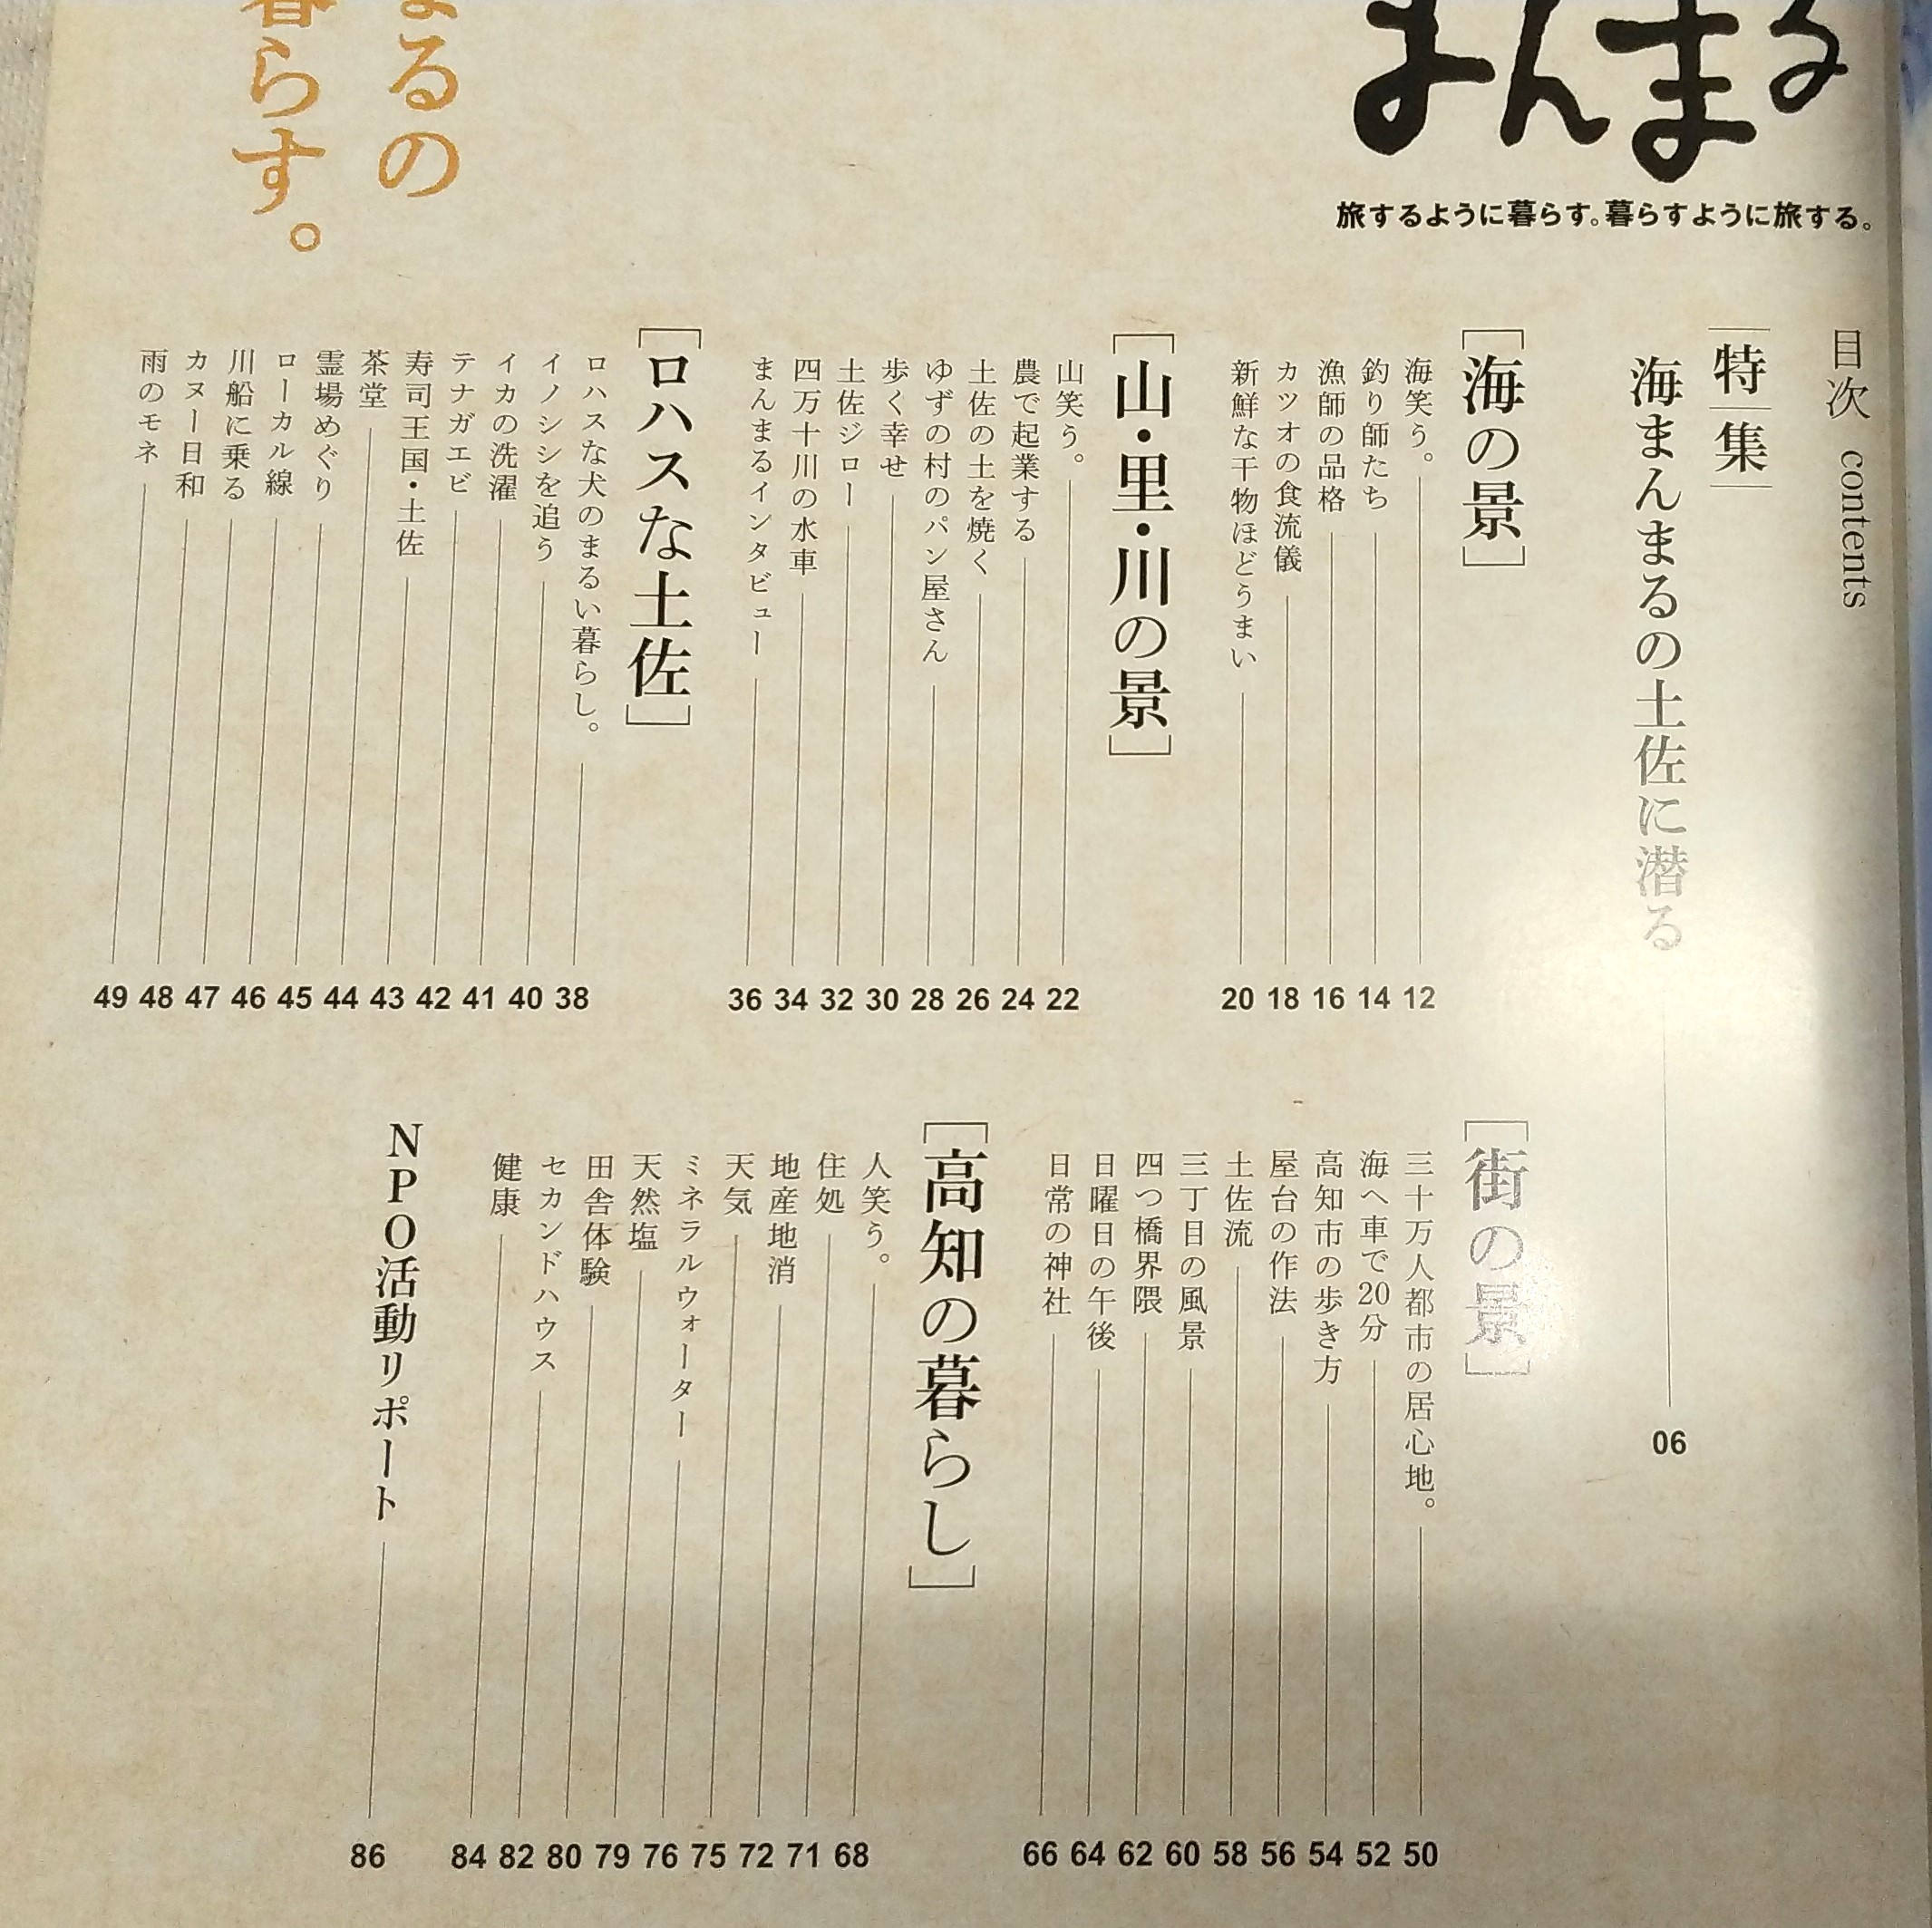 まんまる
旅するように暮らす。暮らすように旅する。
まるの
暮らす。
目次 contents
特集
海まんまるの土佐に潜る 06
[海の景]
海笑う。 12
釣り師たち 14
漁師の品格 16
カツオの食流儀 18
新鮮な干物ほどうまい 20
[山・里・川の景]
山笑う。 22
農で起業する 24
土佐の土を焼く 26
ゆずの村のパン屋さん 28
歩く幸せ 30
土佐ジロー 32
四万十川の水車 34
まんまるインタビュー 36
[ロハスな土佐]
ロハスな犬のまるい暮らし。 38
イノシシを追う 40
イカの洗濯 41
テナガエビ 42
寿司王国・土佐 43
茶堂 44
霊場めぐり 45
ローカル線 46
川船に乗る 47
カヌー日和 48
雨のモネ 49
[街の景]
三十万人都市の居心地。 50
海へ車で20分 52
高知市の歩き方 54
屋台の作法 56
土佐流 58
三丁目の風景 60
四つ橋界隈 62
日曜日の午後 64
日常の神社 66
[高知の暮らし]
人笑う。 68
住処 71
地産地消 72
天気 75
ミネラルウォーター 76
天然塩 79
田舎体験 80
セカンドハウス 82
健康 84
NPO活動リポート 86